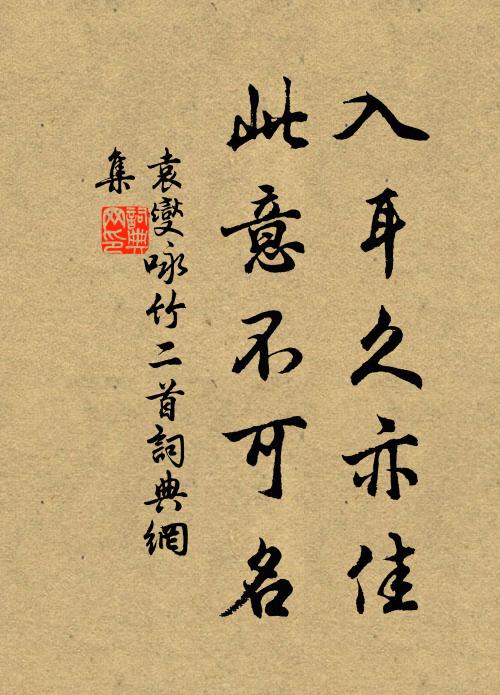 入耳久亦佳
此意不可名
袁燮咏竹二首詞典網
集
詞典
网印